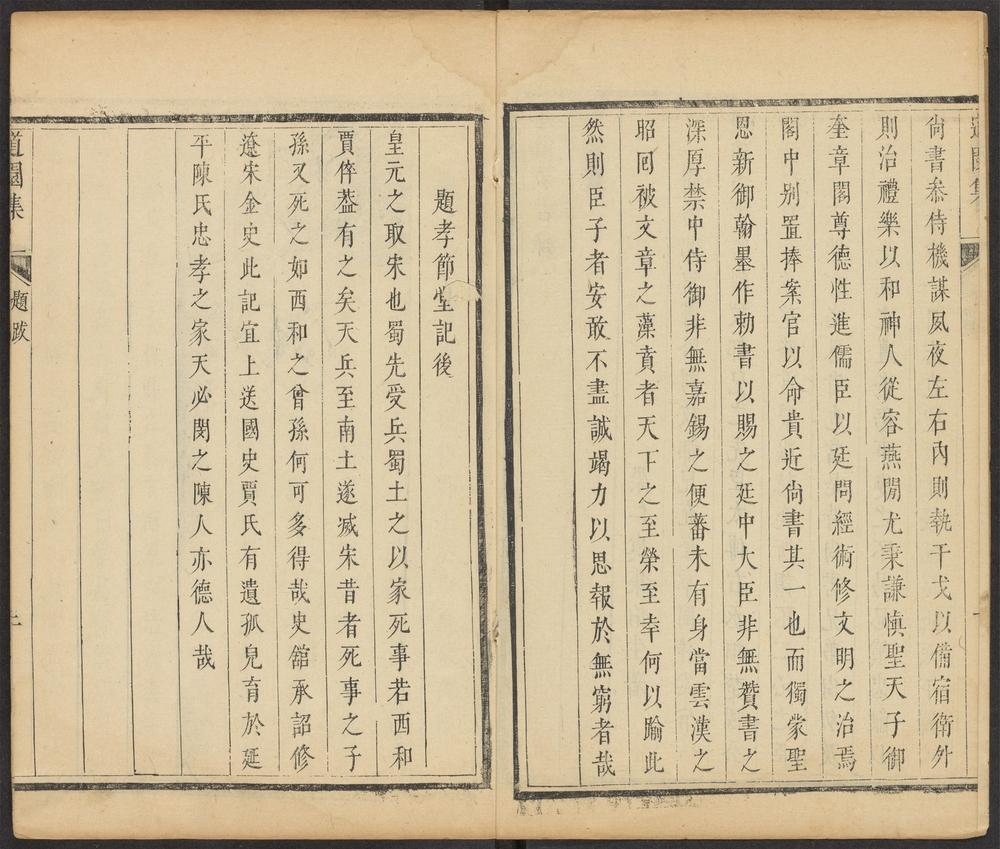 道園集
尚書叅侍機謀夙夜左右內則執干戈以備宿衛外
則治禮樂以和神人從容燕閒尤秉謙慎聖天子御
奎章閣尊德性進儒臣以廷問經術修文明之治焉
閣中别置捧案官以命貴近尚書其一也而獨蒙聖
恩新御翰墨作勅書以賜之廷中大臣非無贊書之
深厚禁中侍御非無嘉錫之便蕃未有身當雲漢之
昭回被文章之藻賁者天下之至榮至幸何以踰此
然則臣子者安敢不盡誠竭力以思報於無窮者哉
題孝節堂記後
皇元之取宋也蜀先受兵蜀土之以家死事若西和
賈倅葢有之矣天兵至南土遂滅宋昔者死事之子
孫又死之如西和之曾孫何可多得哉史舘承詔修
遼宋金史此記宜上送國史賈氏有遺孤兒育於延
平陳氏忠孝之家天必閔之陳人亦德人哉
道園集 題跋